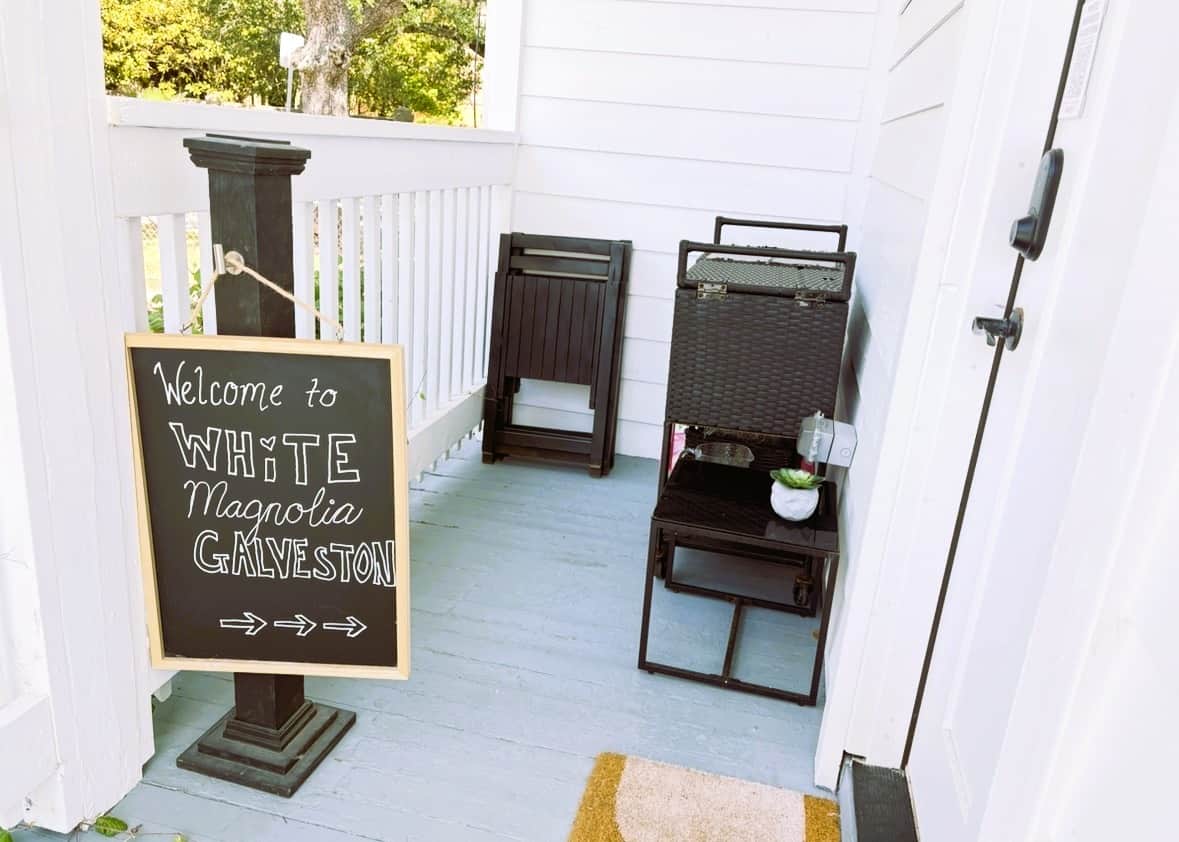 Welcome to
WHiTE
Magnolia
GALVESTON
→→→